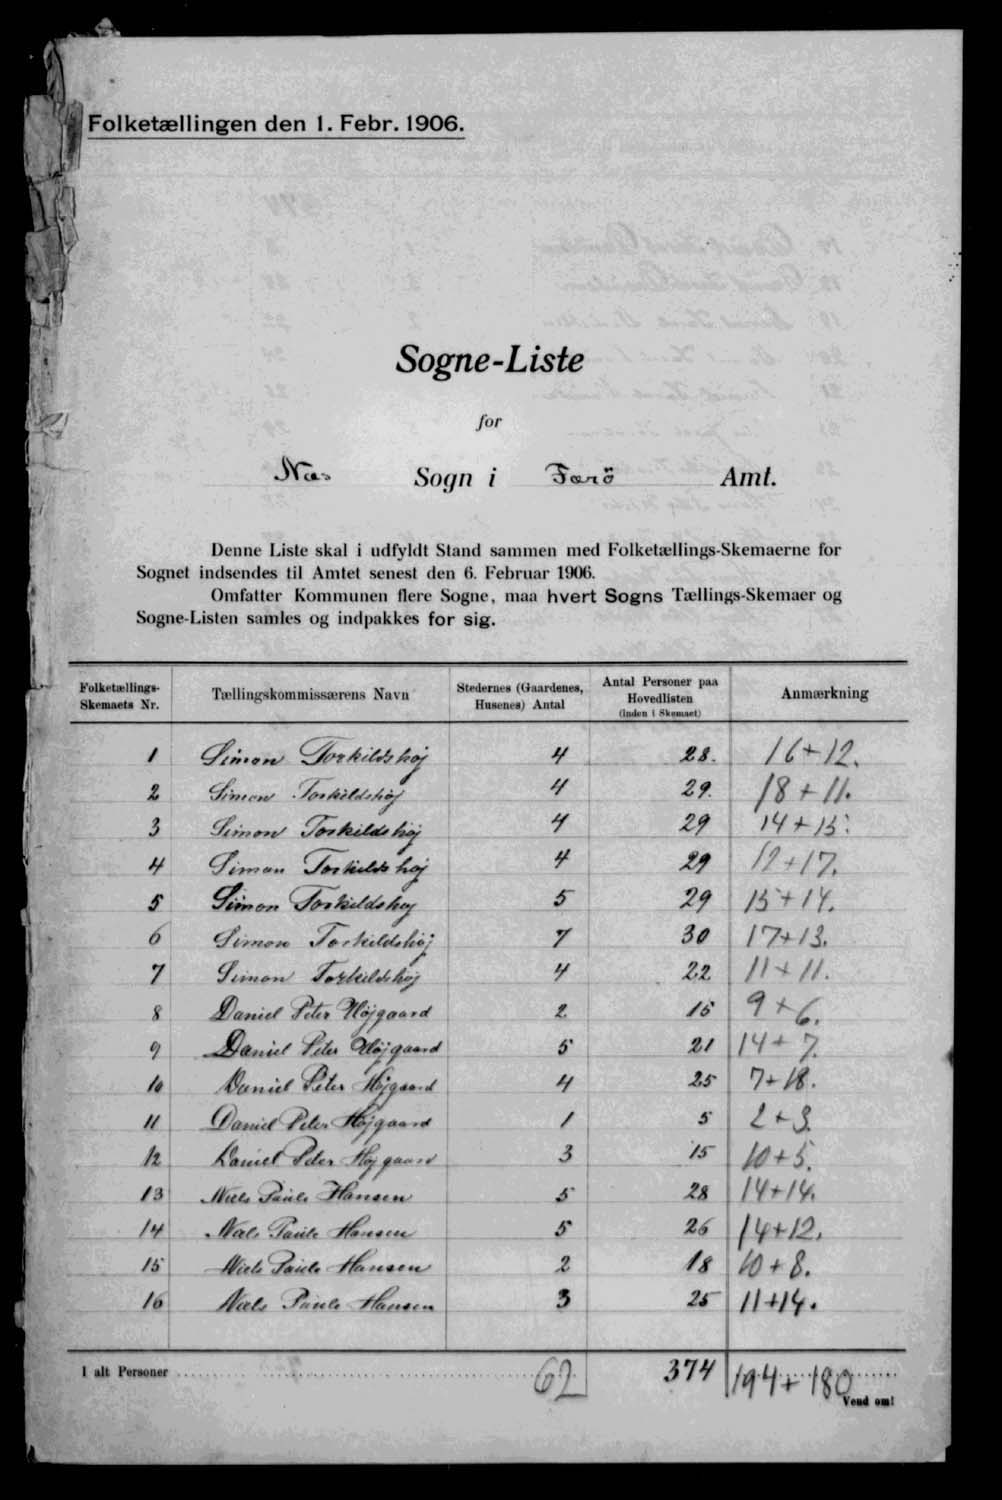 Folketællingen den 1. Febr. 1906.
Sogne-Liste
for
Næs Sogn i Færö Amt.
Denne Liste skal i udfyldt Stand sammen med Folketællings-Skemaerne for
Sognet indsendes til Amtet senest den 6. Februar 1906.
Omfatter Kommunen flere Sogne, maa hvert Sogns Tællings-Skemaer og
Sogne-Listen samles og indpakkes for sig.
Folketællings-Skemaets Nr. Tællingskommissærens Navn Stedernes (Gaardenes, Husenes) Antal Antal Personer paa Hovedlisten (inden i Skemaet) Anmærkning
1 Simon Torkildshöj 4 28. 16+12.
2 Simon Torkildshöj 4 29. 18+11.
3 Simon Torkildshöj 4 29 14+15.
4 Simon Torkildshöj 4 29 12+17.
5 Simon Torkildshöj 5 29 15+14.
6 Simon Torkildshöj 7 30 17+13.
7 Simon Torkildshöj 4 22 11+11.
8 Daniel Peter Höjgaard 2 15 9+6.
9 Daniel Peter Höjgaard 5 21 14+7.
10 Daniel Peter Höjgaard 4 25 7+18.
11 Daniel Peter Höjgaard 1 5 2+3.
12 Daniel Peter Höjgaard 3 15 10+5.
13 Niels Paule Hansen 5 28 14+14.
14 Niels Paule Hansen 5 26 14+12.
15 Niels Paule Hansen 2 18 10+8.
16 Niels Paule Hansen 3 25 11+14.
I alt Personer 62 374 194+180
Vend om!